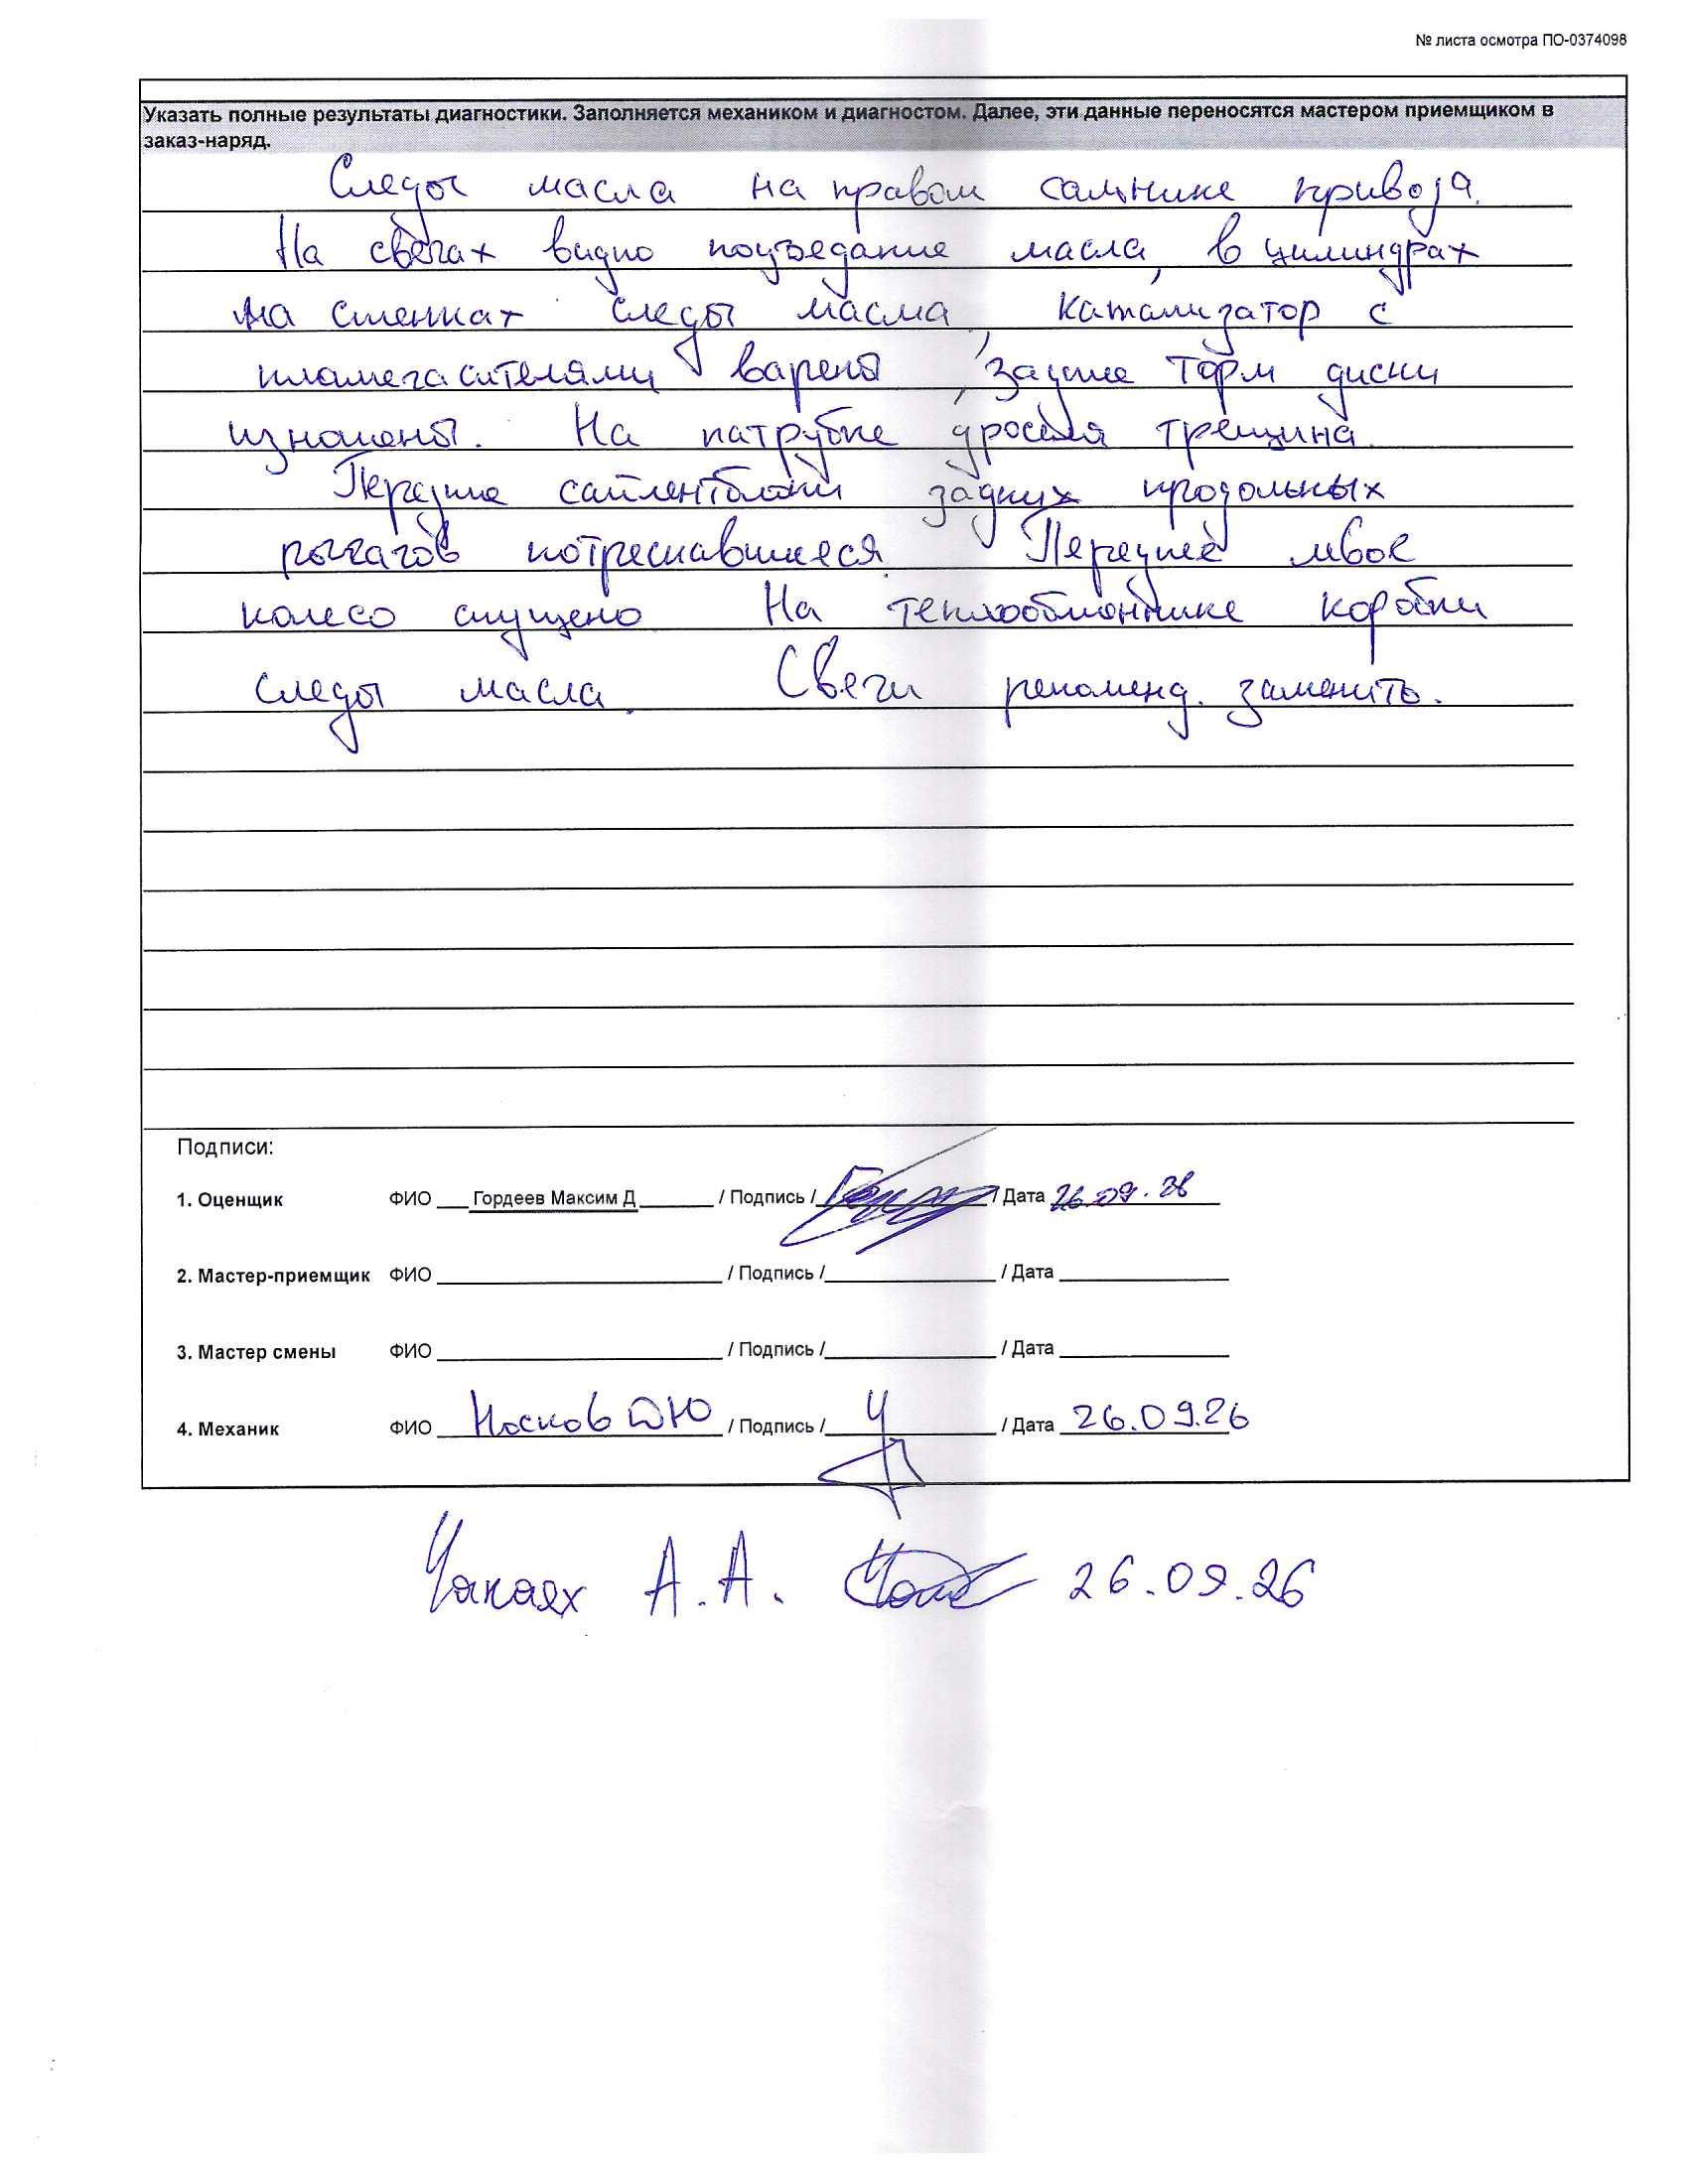 № листа осмотра ПО-0374098
Указать полные результаты диагностики. Заполняется механиком и диагностом. Далее, эти данные переносятся мастером приемщиком в
заказ-наряд.
Следы масла на правом сальнике привода.
На свечах видно подъедание масла, в цилиндрах
на стенках следы масла, катализатор с
пламегасителями варены, задние торм диски
изношены. На патрубке дросселя трещина.
Передние сайлентблоки задних продольных
рычагов потрескавшиеся Переднее левое
колесо спущено На теплообменнике коробки
следы масла. Свечи рекоменд. заменить.
Подписи:
1. Оценщик ФИО Гордеев Максим Д / Подпись / / Дата 26.09.26
2. Мастер-приемщик ФИО / Подпись / / Дата
3. Мастер смены ФИО / Подпись / / Дата
4. Механик ФИО Носков Д Ю / Подпись / / Дата 26.09.26
А.А. 26.09.26